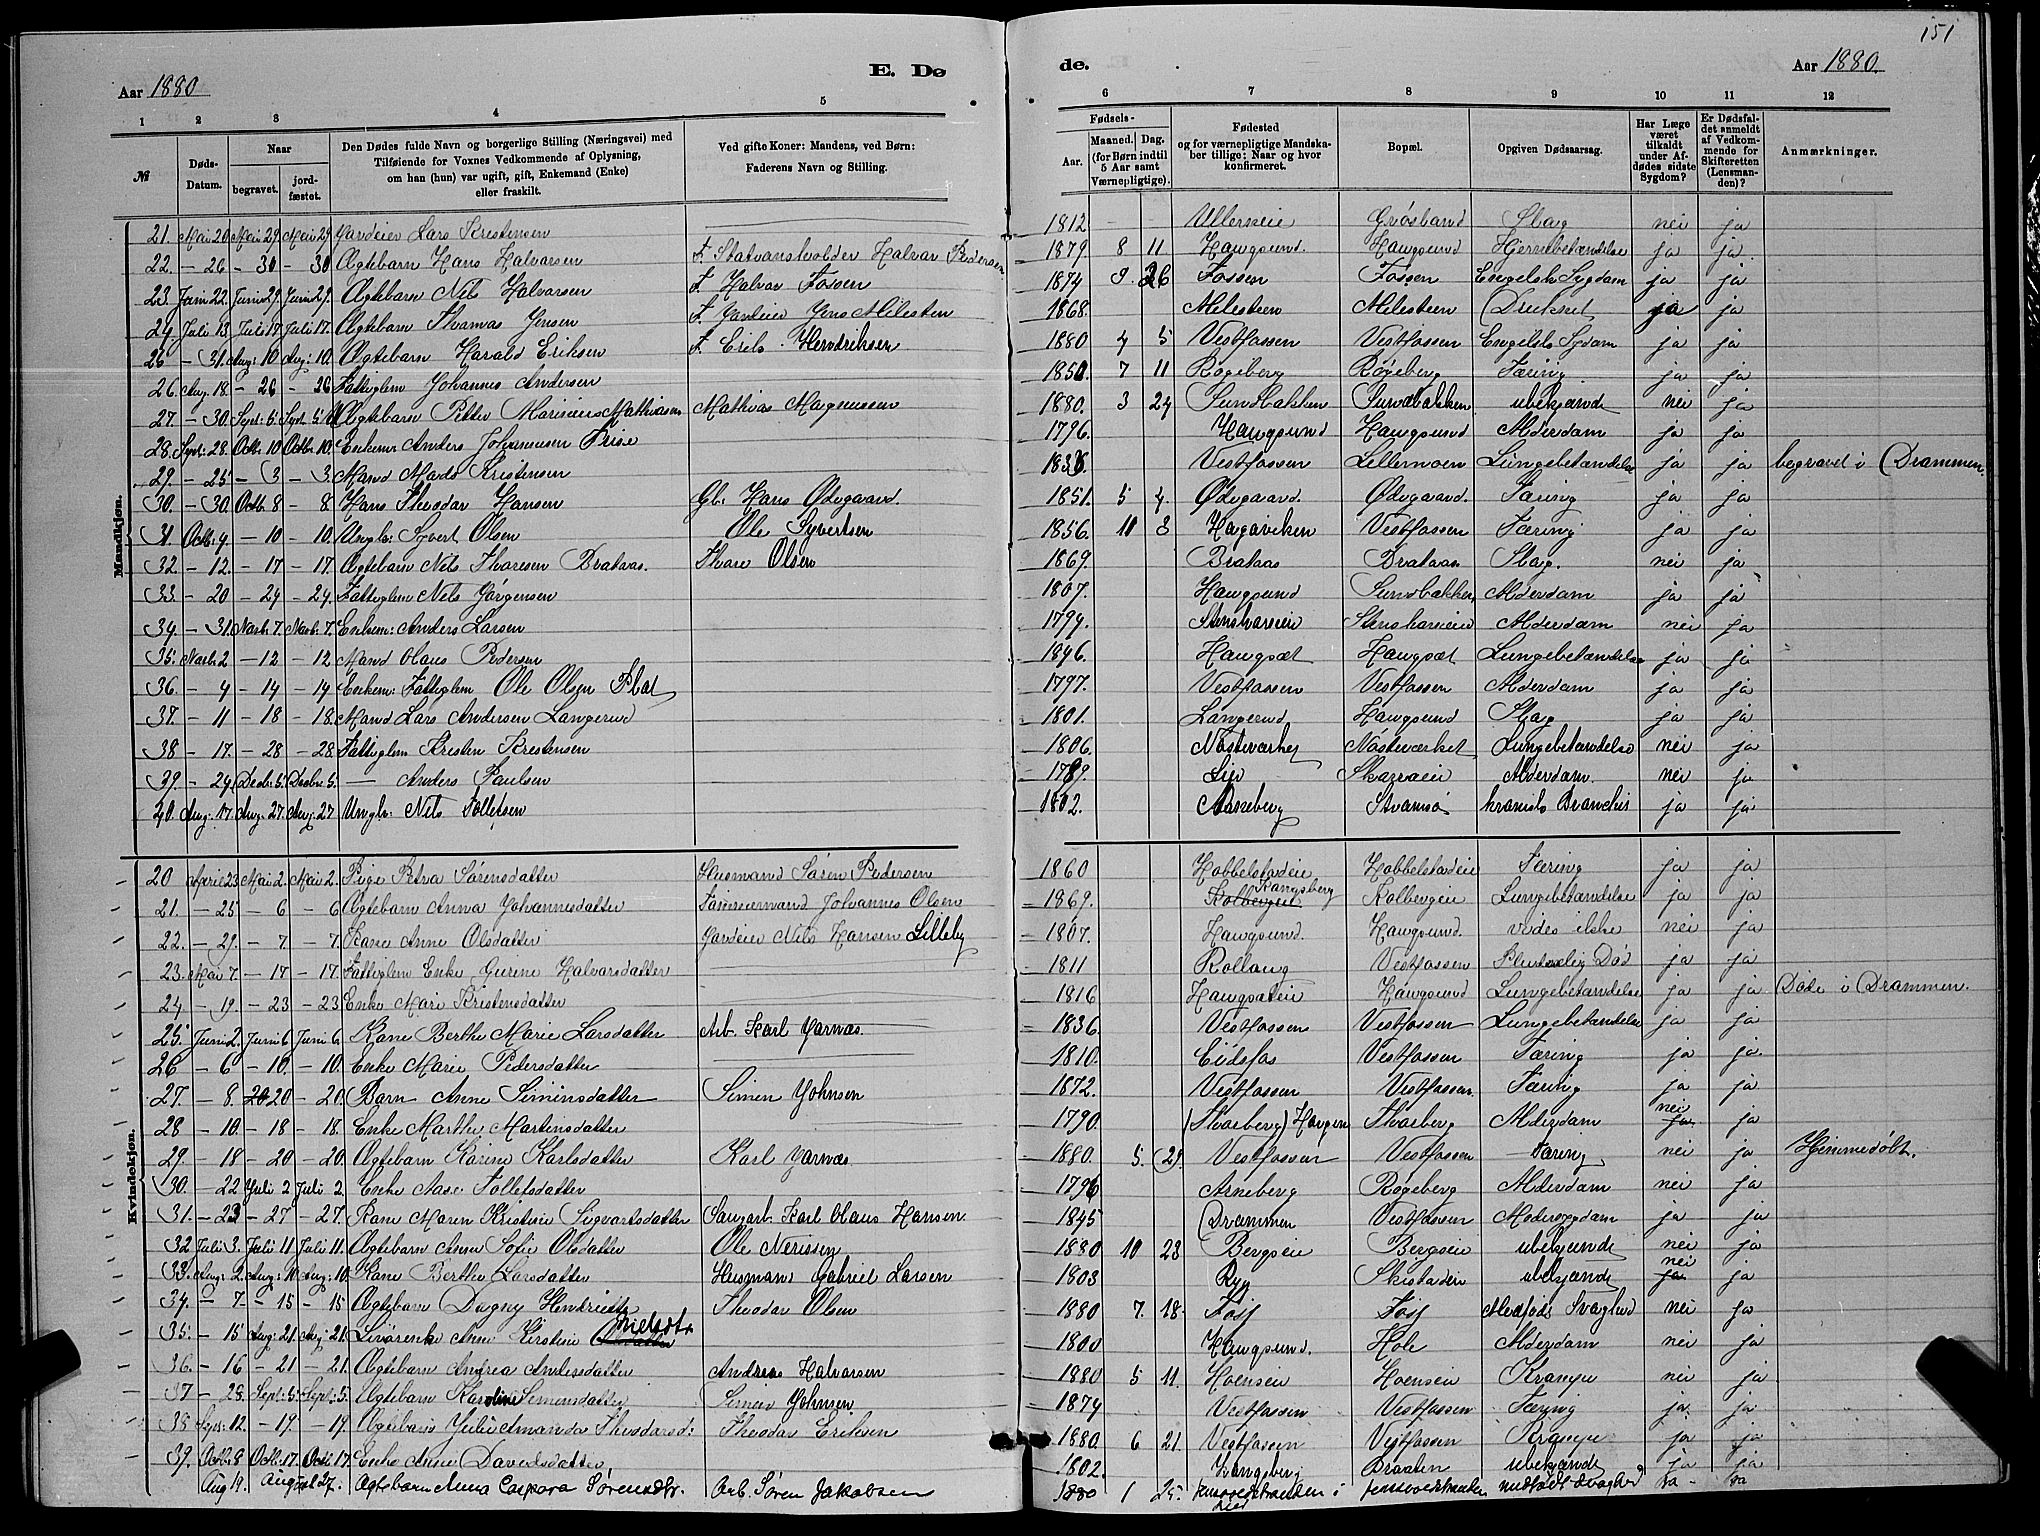 151
Aar 1880
E. Dø
de.
Aar 1880.
1 2 3 4 5
6 7 8 9 10 11 12
№
Døds-Datum.
Naar
begravet. jordfæstet.
Den Dødes fulde Navn og borgerlige Stilling (Næringsvei) med
Tilføiende for Voxnes Vedkommende af Oplysning,
om han (hun) var ugift, gift, Enkemand (Enke)
eller fraskilt.
Ved gifte Koner: Mandens, ved Børn:
Faderens Navn og Stilling.
Fødsels-
Aar.
Maaned. Dag.
(for Børn indtil
5 Aar samt
Værnepligtige).
Fødested
og for værnepligtige Mandska-
ber tillige: Naar og hvor
konfirmeret.
Bopæl.
Opgiven Dødsaarsag.
Har Læge
været
tilkaldt
under Af-
dødes sidste
Sygdom?
Er Dødsfal-
det anmeldt
af Vedkom-
mende for
Skifteretten
(Lensman-
den)?
Anmærkninger.
Mandkjøn.
21. Mai 20 Mai 29 Mai 29 Gardeier Lars Kristensen 1812 Ullerneie Grøsband Slag nei ja
22. - 26 - 30 - 30 Ægtebarn Hans Halvarsen F. Statvansholder Halvar Pedersen 1879 8 11 Haugsund. Haugsund Hjernebetændelse ja ja
23. Juni 22. Juni 29. Juni 29. Ægtebarn Nils Halvarsen F. Halvar Fossen 1874 9 26 Fossen Fossen Engelsk Sygdom ja ja
24 Juli 13 Juli 17 Juli 17. Ægtebarn Thomas Jensen F. Gardeier Jens Milesten 1868. Milesteen Milesteen Druknet ja ja
25 - 31. Aug: 10 Aug: 10. Ægtebarn Harald Eriksen F. Erik Hendriksen 1880 4 5 Vestfossen Vestfossen Engelsk Sygdom ja ja
26. Aug. 18 - 26 - 26 Fattiglem Johannes Andersen 1850. 7 11 Røgeberg Røgeberg Tæring ja ja
27. - 30. Sept: 5 Sept. 5 Ægtebarn Petter Marinius Mathiasen Mathias Magnussen 1880. 3 24 Sundbakken Sundbakken ubekjendt nei ja
28. Sept: 28. Octb. 10 Octbr. 10. Enkem: Anders Johannesen Frise 1796. Haugsund Haugsund Alderdom ja ja
29. - 25 - 3 - 3. Mand Mads Kristensen 1836. Vestfossen Lellemoen Lungebetændelse ja ja begravet i Drammen.
30. - 30. Octb. 8 - 8 Hans Theodor Hansen Gb. Hans Ødegaard. 1851. 5 4. Ødegaard. Ødegaard. Tæring ja ja
31. Octb. 4. - 10 - 10. Ungk: Syvert Olsen Ole Syvertsen 1856. 10 3 Hagaviken Vestfossen Tæring ja ja
32. - 12. - 17 - 17. Ægtebarn Nils Thoresen Brataas. Thore Olsen 1869. Brataas Brataas Slag. nei ja
33. - 20 - 24 - 24. Fattiglem Nils Jørgensen 1807. Haugsund Sundbakken Alderdom ja ja
34. - 31. Novb. 7. Novb: 7. Enkem: Anders Larsen 1794. Stensharseie Stensharseie Alderdom nei ja
35. Novb. 2 - 12 - 12 Mand Olaus Pedersen 1846. Haugsæt Haugsæt Lungebetændelse ja ja
36. - 4 - 14 - 14 Enkem: Fattiglem Ole Olsen Plat 1797. Vestfossen Vestfossen Alderdom ja ja
37. - 11 - 18 - 18. Mand Lars Andersen Langerud 1801. Langerud Haugsund Slag ja ja
38 - 17. - 28 - 28. Fattiglem Kristen Kristensen 1806. Nøsteværket Nøsteværket Lungebetændelse nei ja
39. - 24 Decbr. 5. Decbr. 5. — Anders Paulsen 1789. Lie Skarraeie Alderdom. nei ja
40. Aug: 17. Aug. 27. Aug. 27 Ungk: Nils Tollefsen 1802. Aaneberg Strømsø kronisk Bronchit ja ja
Kvindekjøn.
20 April 23. Mai 2. Mai 2. Pige Petra Sørensdatter Husmand Søren Pedersen 1860 Hobbelstadeie Hobbelstadeie Tæring ja ja
21. - 25 - 6 - 6 Ægtebarn Anna Johannesdatter Tømmermand Johannes Olsen 1869. Kolbergeie Kongsberg Kolbergeie Lungebetændelse ja ja
22. - 29. - 7 - 7. Kone Anne Olsdatter Gardeier Nils Hansen Lilleby 1807. Haugsund. Haugsund. vides ikke nei ja
23. Mai 7. - 17 - 17. Fattiglem Enke Gurine Halvarsdatter 1811 Rollaug Vestfossen Pludselig Død ja ja
24. - 19. - 23 - 23 Enke Mari Kristensdatter 1816 Haugsateie Haugsund Lungebetændelse ja ja Døde i Drammen.
25. Juni 2. Juni 6 Juni 6. Kone Berthe Marie Larsdatter Arb. Karl Jarnæs 1836. Vestfossen Vestfossen Lungebetændelse ja ja
26 - 6 - 10. - 10. Enke Marie Pedersdatter 1810. Eidsfos Vestfossen Tæring ja ja
27. - 8. 20 20 - 20. Barn Anne Simensdatter Simen Johnsen 1872. Vestfossen Vestfossen Tæring ja ja
28 - 10. - 18 - 18. Enke Marthe Martinsdatter 1790. (Skarberg) Haugen Skarberg Alderdom nei ja ja
29. - 18 - 20 - 20. Ægtebarn Karine Karlsdatter Karl Jarnæs 1880. 5. 29. Vestfossen Vestfossen Tæring nei ja Hjemmedøbt.
30. - 22 Juli 2 Juli 2. Enke Aase Tollefsdatter 1796 Arneberg Røgeberg Alderdom nei ja
31. - 23 - 27 - 27. Kone Maren Kristine Sigvartsdatter Saugarb. Karl Olaus Hansen 1845 Drammen Vestfossen Modersygdom ja ja
32 Juli 3. Juli 11 Juli 11. Ægtebarn Anne Sofie Olsdatter Ole Nerissen 1880 10 23 Bergseie Bergseie ubekjendt nei ja
33. Aug: 2 Aug: 10 Aug: 10. Kone Berthe Larsdatter Husmand Gabriel Larsen 1803 Ryg Skistadeie ubekjendt nei ja ja
34. - 7 - 15 - 15 Ægtebarn Dagny Hendriette Theodor Olsen 1880 7. 18. Fosf Fosf Medfødt Svaghed nei ja
35. - 15 Aug. 21. Aug. 21. Enke Anne Kirstine Nielsdtr 1800 Haugsund. Hole Alderdom nei ja
36. - 16 - 21 - 21. Ægtebarn Andrea Andersdatter Andreas Halvorsen 1880 5 11. Hoenseie Hoenseie Krampe nei ja
37 - 28 Sept: 5 Sept: 5. Ægtebarn Karoline Simensdatter Simen Johnsen 1874 Vestfossen Vestfossen Tæring ja ja
38 Sept: 12. - 19. - 19. Ægtebarn Julie Amanda Theodorsd: Theodor Eriksen 1880. 6 21. Vestfossen Vestfossen Krampe ja ja
39. Octb: 8 Octb: 17. Octb. 17. Enke Anne Davidsdatter 1802. Kongsberg Braaten ubekjendt ja ja
Aug 19. August 27. Ægtebarn Anna Caspara Sørensdtr. Arb. Søren Jakobsen 1880 1 25. medfødt svaghed ja - ja